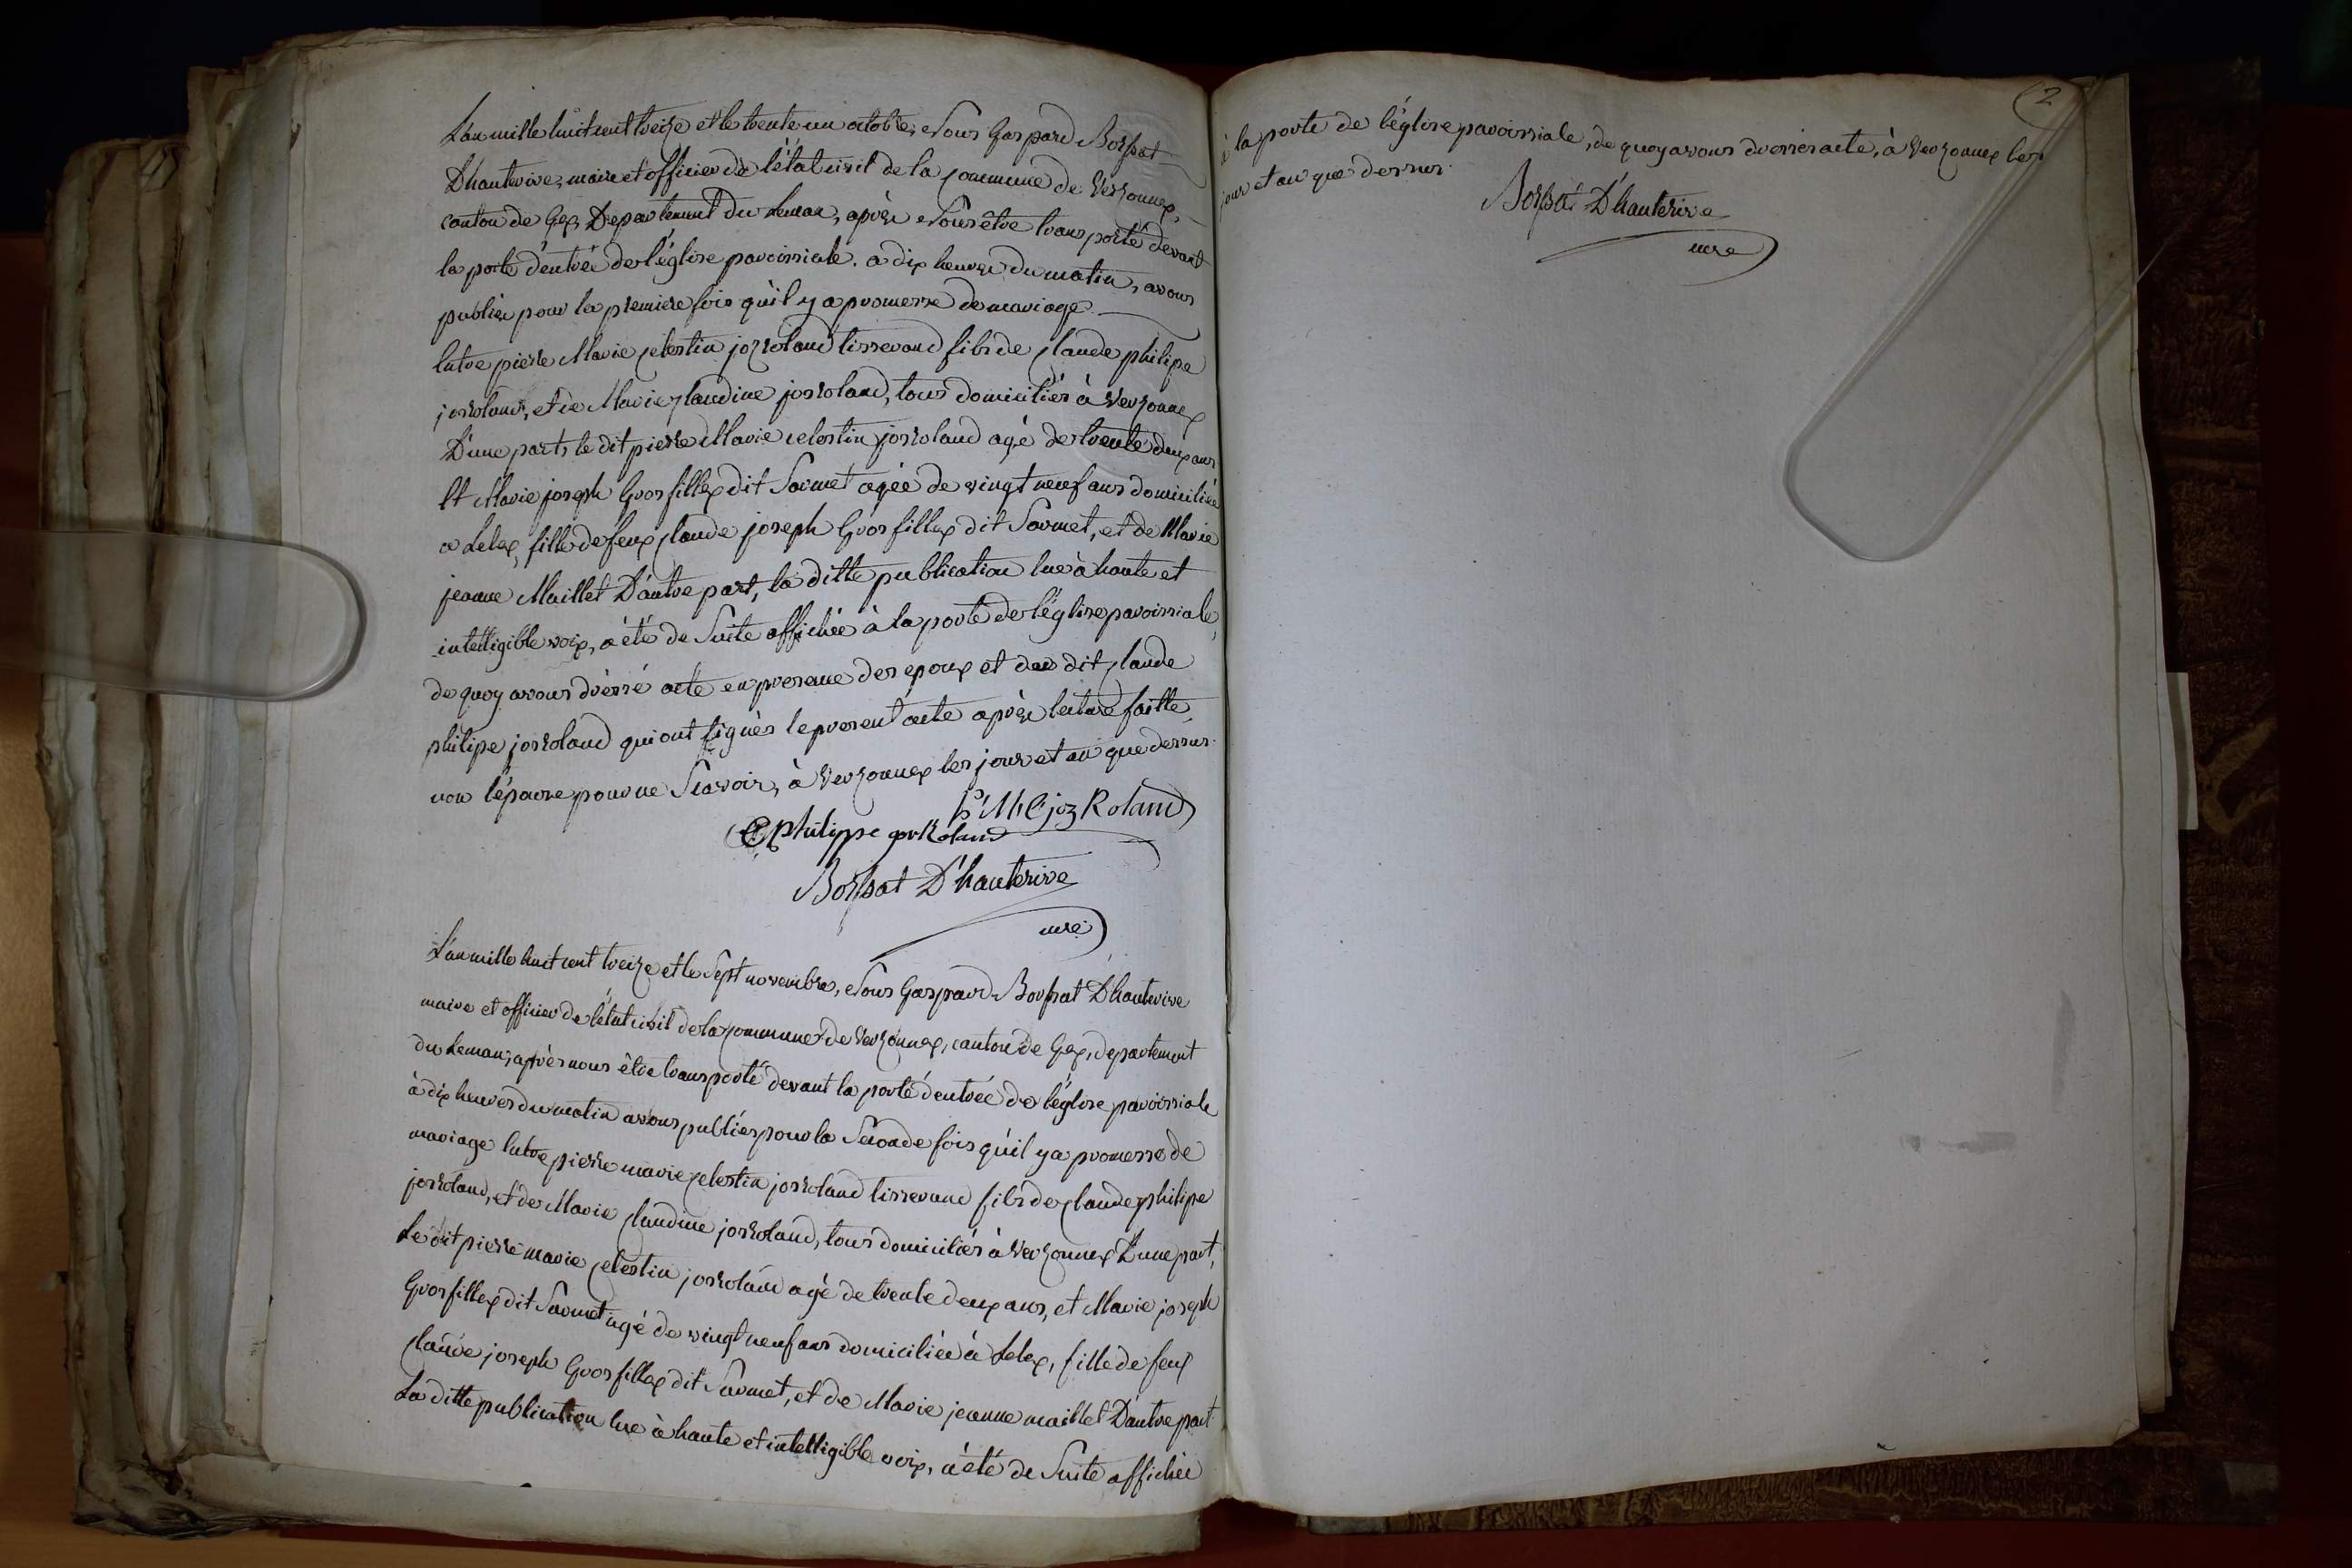 L'an mille huit cent treize et le trente un octobre, Nous Gaspard Borssat
D'hauterive, maire et officier de l'état civil de la commune de Versonnex,
canton de Gex, Departement du Leman, après Nous être transporté devant
la porte d'entrée de l'église paroissiale. a dix heures du matin, avons
publiés pour la premiere fois qu'il y a promesse de mariage
Entre pierre Marie Celestin josroland tisserand fils de Claude philipe
josroland, et de Marie Claudine josroland, tous domiciliés à Versonnex
D'une part, le dit pierre Marie celestin josroland agé de trente deux ans
Et Marie joseph Grosfillex dit Sarmet agée de vingt neuf ans domiciliée
a Lelex, fille de feux Claude joseph Grosfillex dit Sarmet, et de Marie
jeanne Maillet D'autre part, la ditte publication lue à haute et
intelligible voix, a été de Suite affichée à la porte de l'église paroissiale,
de quoy avons dréssé acte en presence des epoux et du dit Claude
philipe josroland qui ont signés le present acte après lecture faitte,
non l'épouse pour ne Sçavoir, à Versonnex les jour et an que dessus.
P M C joz Roland
C philippe joz Roland
Borssat D'hauterive
mre
L'an mille huit cent treize et le Sept novembre, Nous Gaspard Borssat D'hauterive
maire et officier de l'état civil de la commune de Versonnex, canton de Gex, departement
du Leman, après nous être transporté devant la porte d'entrée de l'église paroissiale
à dix heures du matin avons publiés pour la Seconde fois qu'il y a promesse de
mariage Entre pierre marie Celestin josroland tisserand fils de Claude philipe
josroland, et de Marie Claudine josroland, tous domiciliés à Versonnex D'une part,
Le dit pierre marie Celestin josroland agé de trente deux ans, et Marie joseph
Grosfillex dit Sarmet agé de vingt neuf ans domiciliée à Lelex, fille de feux
Claude joseph Grosfillex dit Sarmet, et de Marie jeanne maillet D'autre part
La ditte publication lue à haute et intelligible voix, a été de Suite affichée
2
à la porte de l'église paroissiale, de quoy avons dressés acte, à Versonnex les
jour et an que dessus.
Borssat D'hauterive
mre